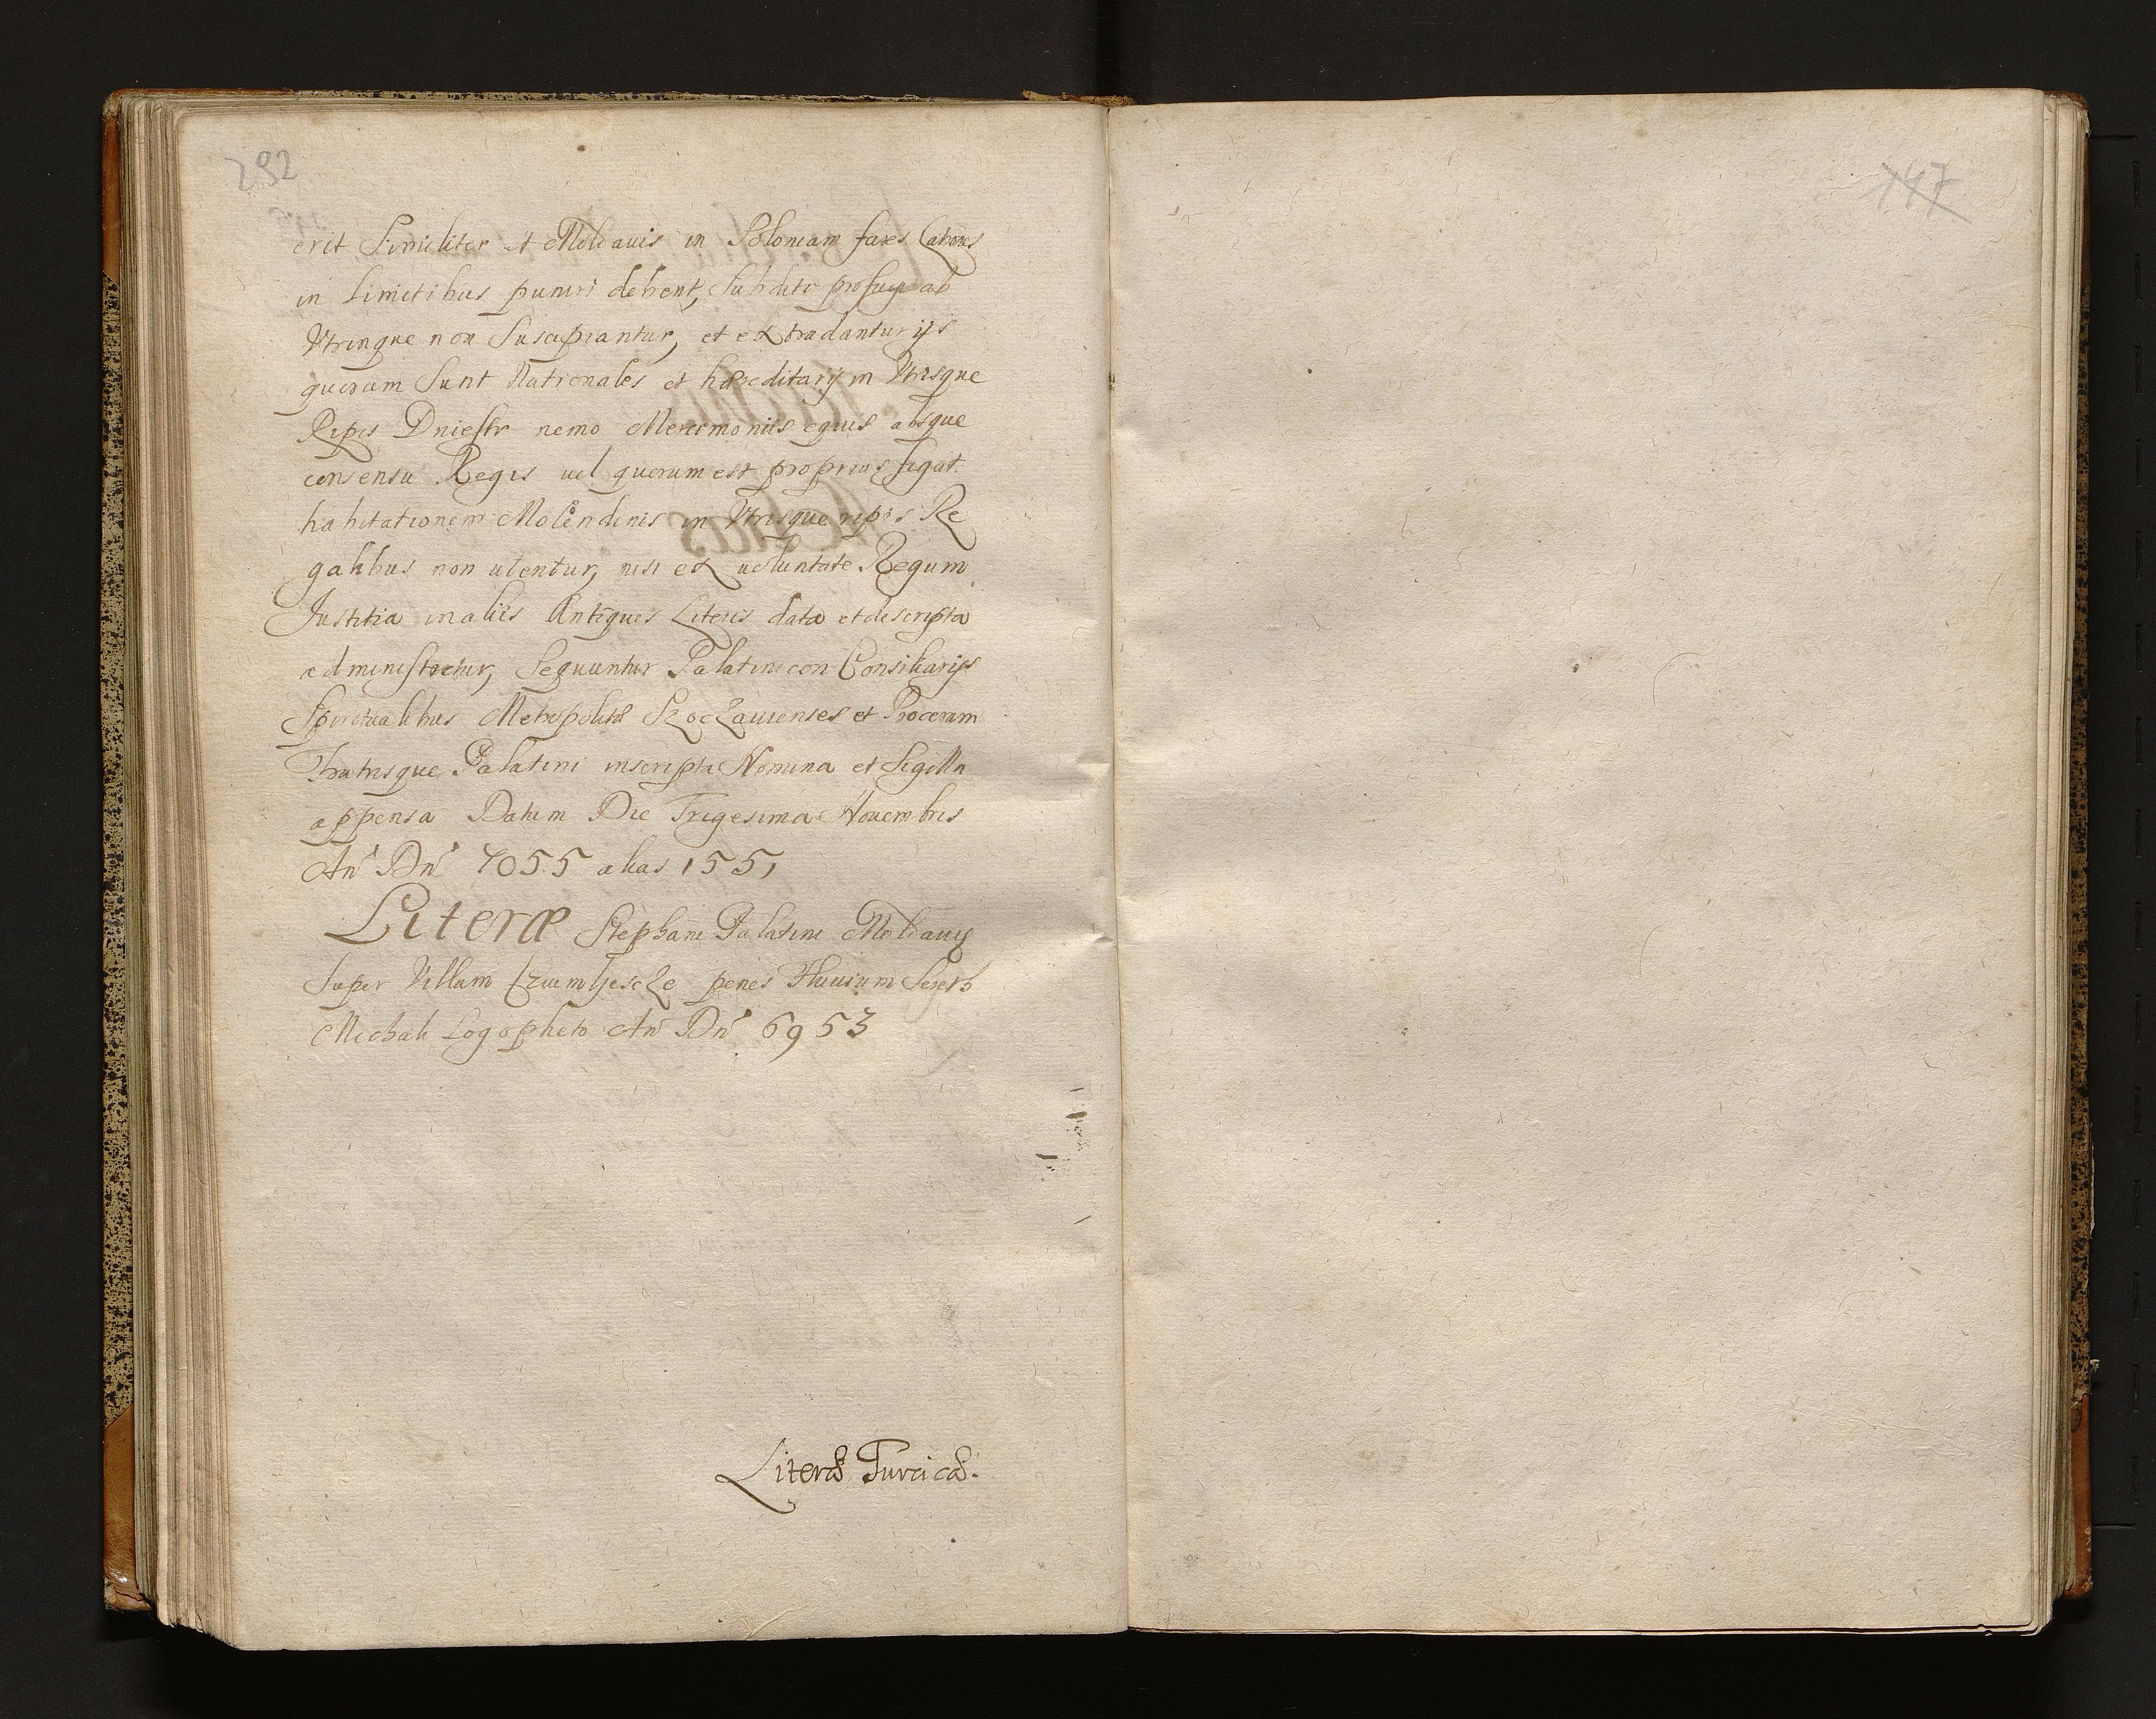 292
erit Similiter et Moldauis in Poloniam fures Latrones
in Limitibus puniri debent, Subditi profugi ab
Vtrinque non Suscipiantur, et extradantur ijs
quorum Sunt Nationales et hæreditarij in Vtrisque
Ripis Dniestr nemo equis absque
consensu Regis uel quorum est proprius figat
habitationem Molendinis in Vtrisque ripis Re
galibus non utentur, nisi ex uoluntate Regum
Justitia in aliis Antiquis Literis data et descripta
administretur, Sequuntur Palatini con Consiliarijs
Spiritualibus Metropolitæ Soczauienses et Procerum
Fratrisque Palatini inscripta Nomina et Sigilla
appensa Datum Die Trigesima Nouembris
An Dn 7055 alias 1551
Literæ Stephani Palatini Moldauiæ
Super Villam penes Fluuium Sereth
Michali Logopheto An Dn 6953
Literæ Turcicæ.
147